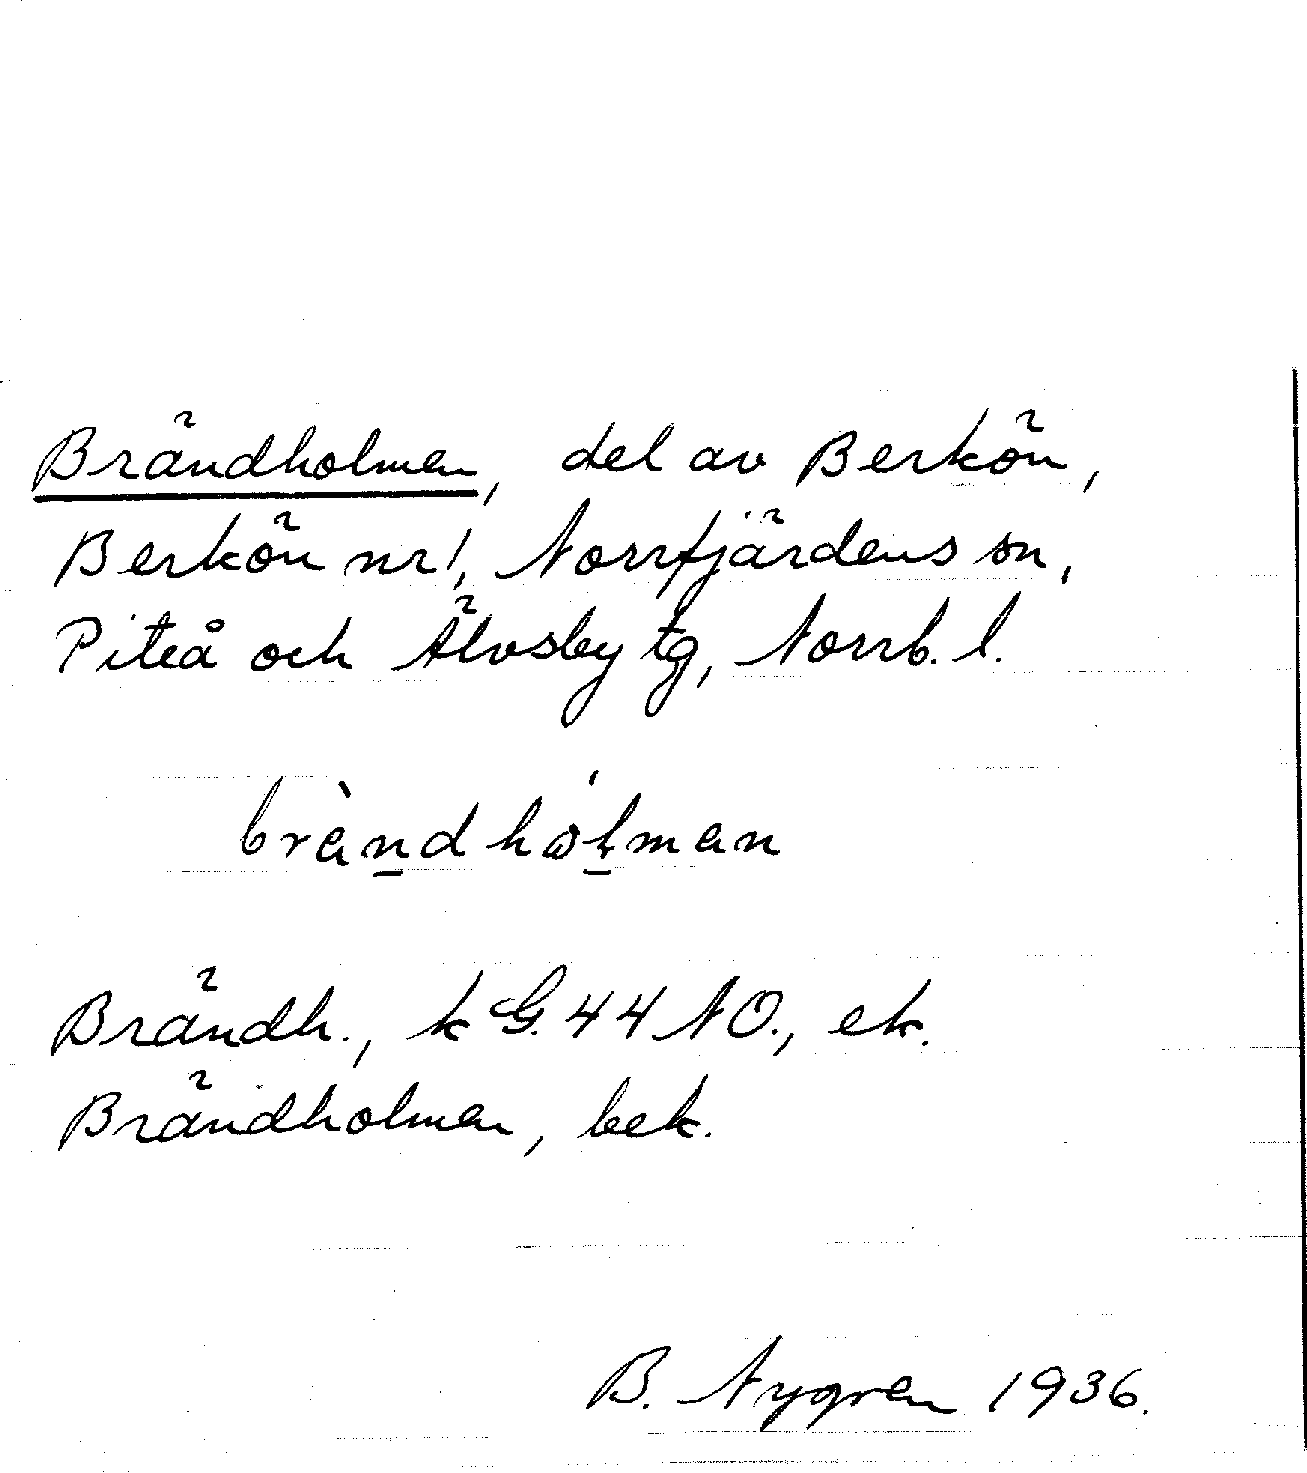 Brändholmen, del av Berkön,
Berkön nr 1, Norrfjärdens sn,
Piteå och Älvsby tg, Norrb. l.
bràndhólman
Brändh., k G. 44 NO., ek.
Brändholmen, bek.
B. Nygren 1936.